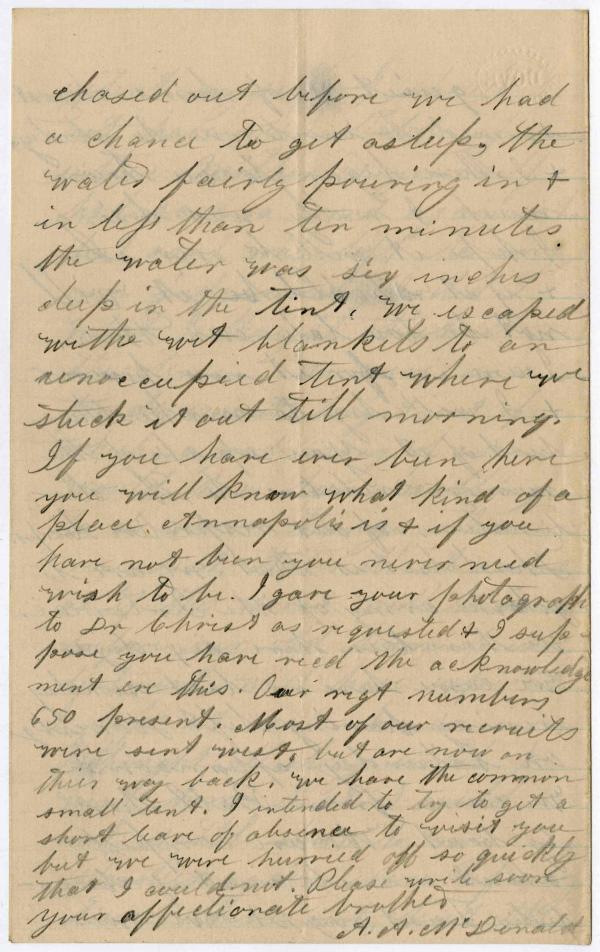 chased out before we had
a chance to get asleep, the
water fairly pouring in &
in less than ten minutes
the water was six inches
deep in the tent. we escaped
withe wet blankets to an
unoccupied tent where we
stuck it out till morning.
If you have ever been here
you will know what kind of a
place Annapolis is & if you
have not been you never need
wish to be. I gave your photograph
to Dr Christ as requested & I sup-
pose you have recd the acknowledge
ment ere this. Our regt numbers
650 present. Most of our recruits
were sent west, but are now on
thier way back. we have the common
small tent. I intended to try to get a
short leave of absence to visit you
but we were hurried off so quickly
that I could not. Please write soon
your affectionate brother
A. A. McDonald